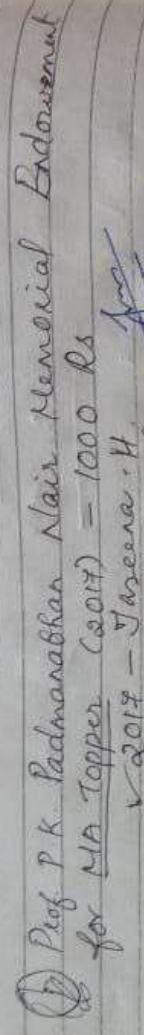 Prof P K Padmanabhan Nair Memorial Endowment
for MA Topper (2017) - 1000 Rs
✓ 2017 - Jaseena. H.